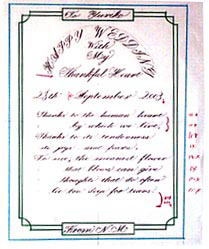 To Yuriko
HAPPY WEDDING
With
My
Thankful Heart
28th September 2003
Thanks to the human heart
by which we live,
Thanks to its tenderness
its joys and fears,
To me, the meanest flower
that blows can give
thoughts that do often
lie too deep for tears.
From N.M.